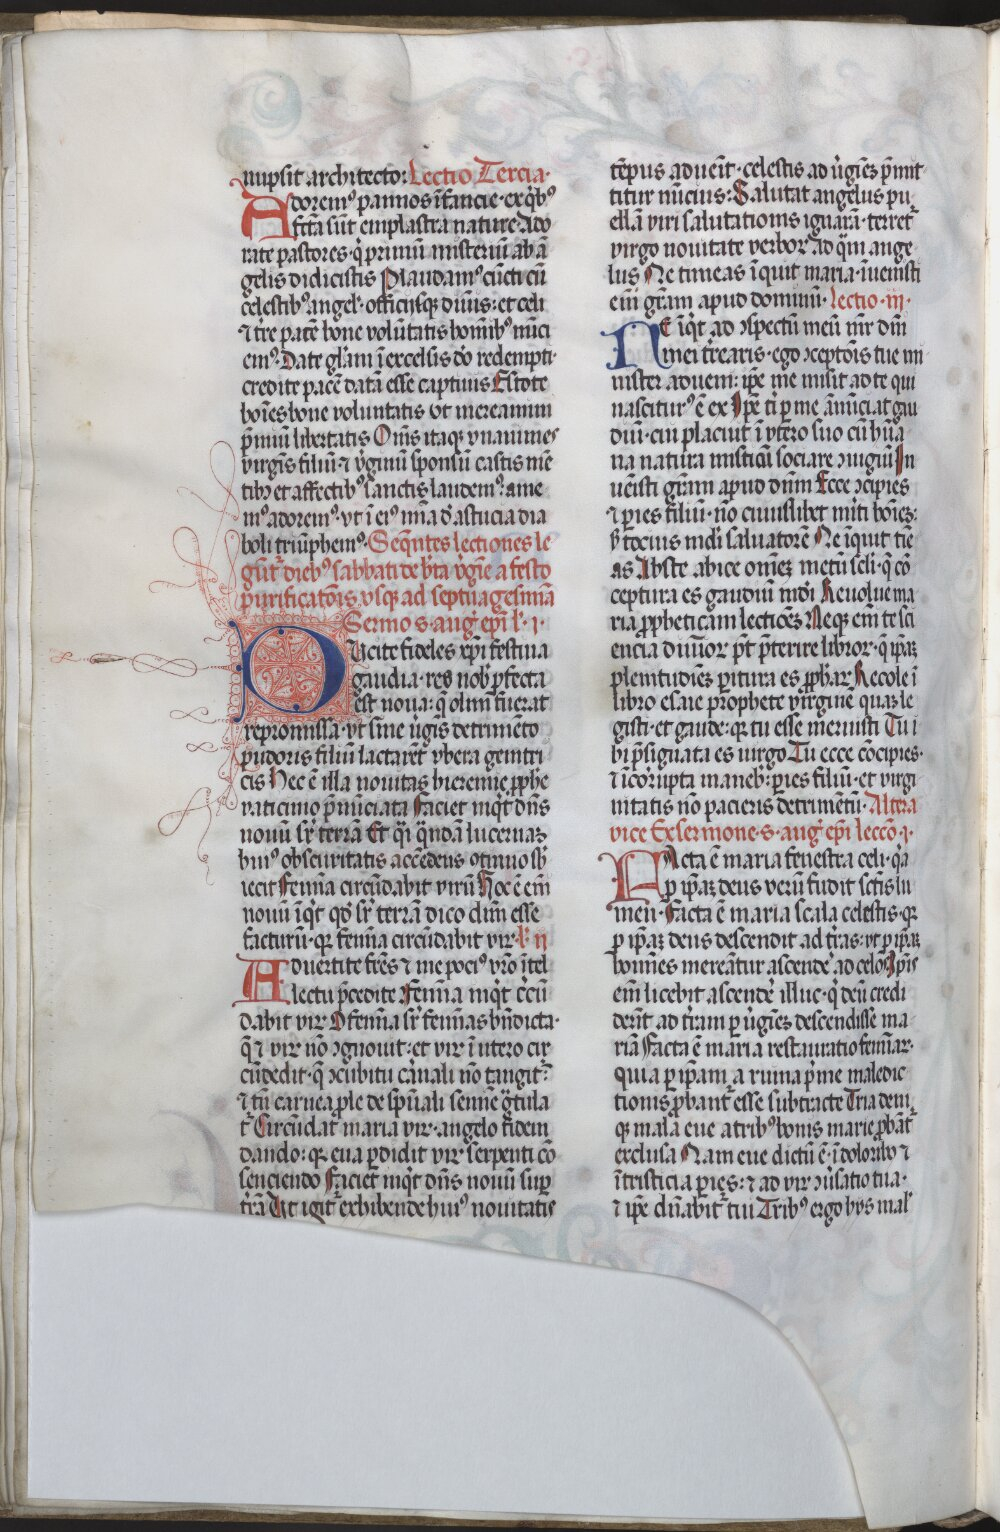 nupsit architecto: Lectio Tercia·
Adoremꝰ p annos ĩfancie· ex q̇bꝰ
fc̃ta sũt emplastra nature· Ado
rate pastores· q̇ primũ misteriũ ab ã
gelis didicistis Plaudamꝰ cũcti cũ
celestibꝰ angel᷒· officijsqꝫ diuis: et celi
⁊ t̃re pacẽ bone volũtatis hoĩnibꝰ nũci
emꝰ· Date gl̃am ĩ excelsis dõ redempti·
credite pacẽ datã esse captiuis Estote
hoĩes bone voluntatis vt mereamini
p̃miũ libertatis Om̃s itaqꝫ vnanimes
virgĩs filiũ ⁊ v̇ginũ sponsũ castis mẽ
tibꝫ et affectibꝰ sanctis laudemꝰ: ame
mꝰ adoremꝰ· vt ĩ eiꝰ nr̃a d̾ astucia dia
boli triũphemꝰ· Seq̃ntes lectiones le
gũt᷑ diebꝰ sabbati de bt̃a v̇gĩe a festo
purificatõis vsqꝫ ad septuagesimã
Sermo s· aug᷒ ep̃i l᷒· j·
Ducite fideles xp̃i festiua
gaudia· res nob᷒ p̃fecta
est noua: q̃ olim fuerat
repromissa· vt sine v̇gis detrimẽto
pudoris filiũ lactarẽt vbera genitri
cis Hec ẽ illa nouitas hieremie ꝓph̃e
vaticinio p̃nũciata Faciet inq̇t dñs
nouũ sr̃ terrã Et q̇i q̃ndã lucernaꝫ
huiꝰ obscuritatis accẽdens ↄtinuo sb̃
iecit Femĩa circũdabit virũ Hoc ẽ em̃
nouũ ĩq̇t qđ sr̃ terrã dico dñm esse
facturũ· qꝛ femĩa circũdabit vir̃ l᷒ ij
Aduertite fr̃es ⁊ me pociꝰ vr̃o ĩtel
lectu p̃cedite Femĩa inq̇t cĩcũ
dabit vir̃ O femĩa sr̃ femĩas bñdicta·
q̃ ⁊ vir̃ nõ ↄgnouit: et vir̃ ĩ utero cir
cũdedit· q̃ ↄcubitu c̾nali nõ tangit᷑:
⁊ tñ carnea ꝓle de sp̃uali semĩe g̾tula
t᷑ Circũdat maria vir̃· angelo fidem
dando: qꝛ eua ꝑdidit vir̃ serpenti cõ
senciendo Faciet inq̇t dñs nouũ suꝑ
t̃rã Ut igit᷑ exhibende huiꝰ nouitatis
tẽpus aduẽit· celestis ad v̇gĩeꝫ p̃mit
titur nũcius: Salutat angelus pu
ellã viri salutationis ignarã· terret᷑
virgo nouitate verboꝝ ad q̃m ange
lus Ne timeas ĩquit maria· ĩuenisti
em̃ gr̃am apud dominũ· lectio· iij·
Ne ĩq̇t ad ↄspectũ meũ mr̃ dñi
mei t̃rearis· ego ↄceptõis tue mi
nister aduem: ip̃e me misit ad te qui
nasciturꝰ ẽ ex Ip̃e t̃ p me ãnũciat gau
diũ· cui placuit ĩ vtero suo cũ hũa
na natura misticũ sociare ↄiugiũ In
uẽisti gr̃am apud dñm Ecce ↄcipies
⁊ ꝑies filiũ· nõ cuiuslibet m̃ti hoĩeꝫ:
ß tocius mdi saluatorẽ Ne ĩquit tĩe
as Abste abice om̃eꝫ metũ seli· q̃ cõ
ceptura es gaudiũ mdi Reuolue ma
ria ꝓpheticam lectioẽꝫ Neqꝫ em̃ te sci
encia diuioꝝ põt p̃terire libroꝝ· q̃ ip̃aꝫ
plenitudieꝫ paritura es ꝓph̃aꝝ Recole ĩ
libro esaie prophete virginẽ quaꝫ le
gisti· et gaude: qꝛ tu esse meruisti Tu i
bi p̃signata es virgo Tu ecce cõcipies·
⁊ ĩcorupta maneb᷒: paries filiũ· et virgi
nitatis nõ pacieris detrimẽtũ· Altera
vice Ex sermone· s· aug᷒ ep̃i leccõ· j·
Facta ẽ maria fenestra celi· q̃a
ꝑ ip̃aꝫ deus verũ fudit sc̃tis lu
men· Facta ẽ maria scala celestis· qꝛ
ꝑ ip̃aꝫ deus descendit ad t̃ras: vt ꝑ ip̃aꝫ
homines mereãtur ascende᷑ ad celos Ip̃is
em̃ licebit ascende᷑ illuc· q̇ deũ credi
derĩt ad t̃ram ꝑ v̇gĩeꝫ descendisse ma
riã Facta ẽ maria restauratio femĩaꝝ·
quia ꝑ ip̃am a ruina p̃me maledic
tionis ꝓbant᷑ esse subtracte Tria deni
qꝫ mala eue a tribꝰ bonis marie ꝓbat᷑
exclusa Nam eue dictũ ẽ· ĩ doloribꝫ ⁊
ĩ tristicia paries: ⁊ ad vir̃ ↄũsatio tua·
⁊ ip̃e dñabit᷑ tui Tribꝰ ergo hijs mal᷒